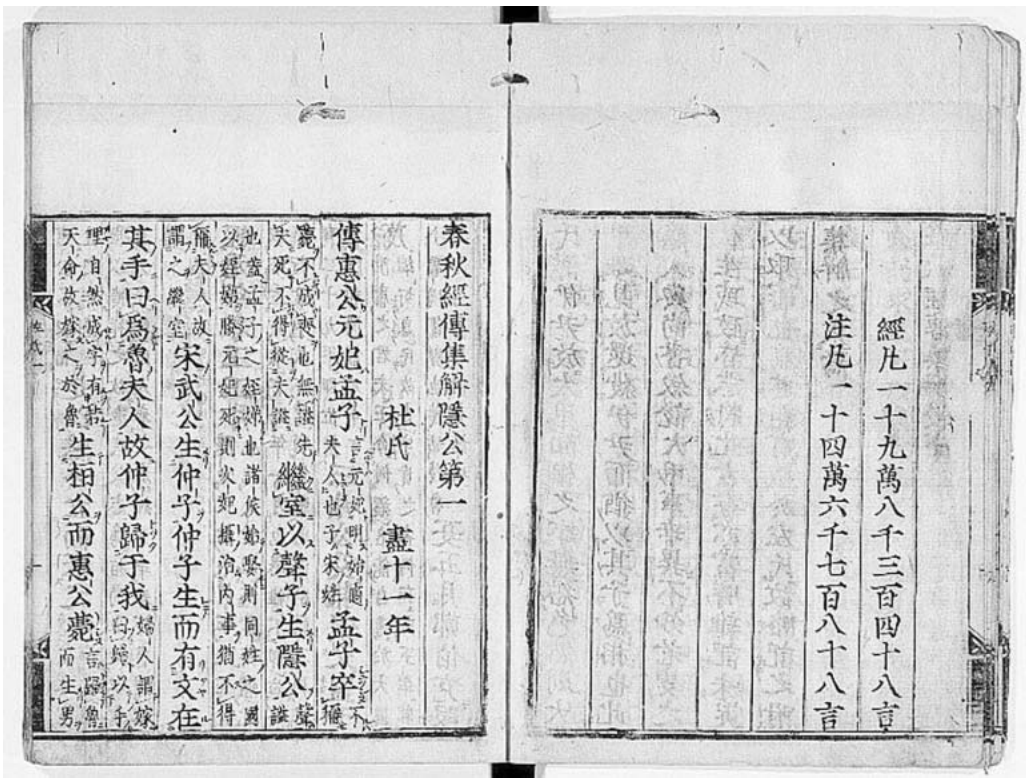 經凡一十九萬八千三百四十八言
注凡一十四萬六千七百八十八言
春秋經傳集解隱公第一
杜氏 盡十一年
傳惠公元妃孟子言元妃明始適夫人也子宋姓孟子卒不稱
薨不成喪也無謚先夫死不得從夫謚繼室以聲子生隱公聲謚
也蓋孟子之姪娣也諸侯始娶則同姓之國以姪娣媵元妃死則次妃攝治內事猶不得
稱夫人故謂之繼室宋武公生仲子仲子生而有文在
其手曰爲魯夫人故仲子歸于我婦人謂嫁曰歸以手
理自然成字有若天命故嫁之於魯生桓公而惠公薨言歸魯而生男
左氏一